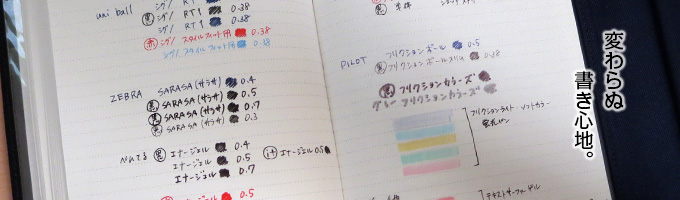 uni ball
シグノ RT1 0.38
黒 シグノ RT1 0.38
シグノ 0.38
赤 シグノ スタイルフィット用 0.38
シグノ スタイルフィット用 0.38
ZEBRA SARASA(サラサ) 0.4
黒 SARASA(サラサ) 0.5
黒 SARASA(サラサ) 0.7
黒 SARASA(サラサ) 0.3
ぺんてる 黒 エナージェル 0.4
エナージェル 0.5
エナージェル 0.7
エナージェル 0.5
0.5
PILOT フリクションボール 0.5
黒 フリクションボールスリム 0.38
黒 フリクションカラーズ
グレー フリクションカラーズ
フリクションライト・ソフトカラー
蛍光ペン
変わらぬ
書き心地。